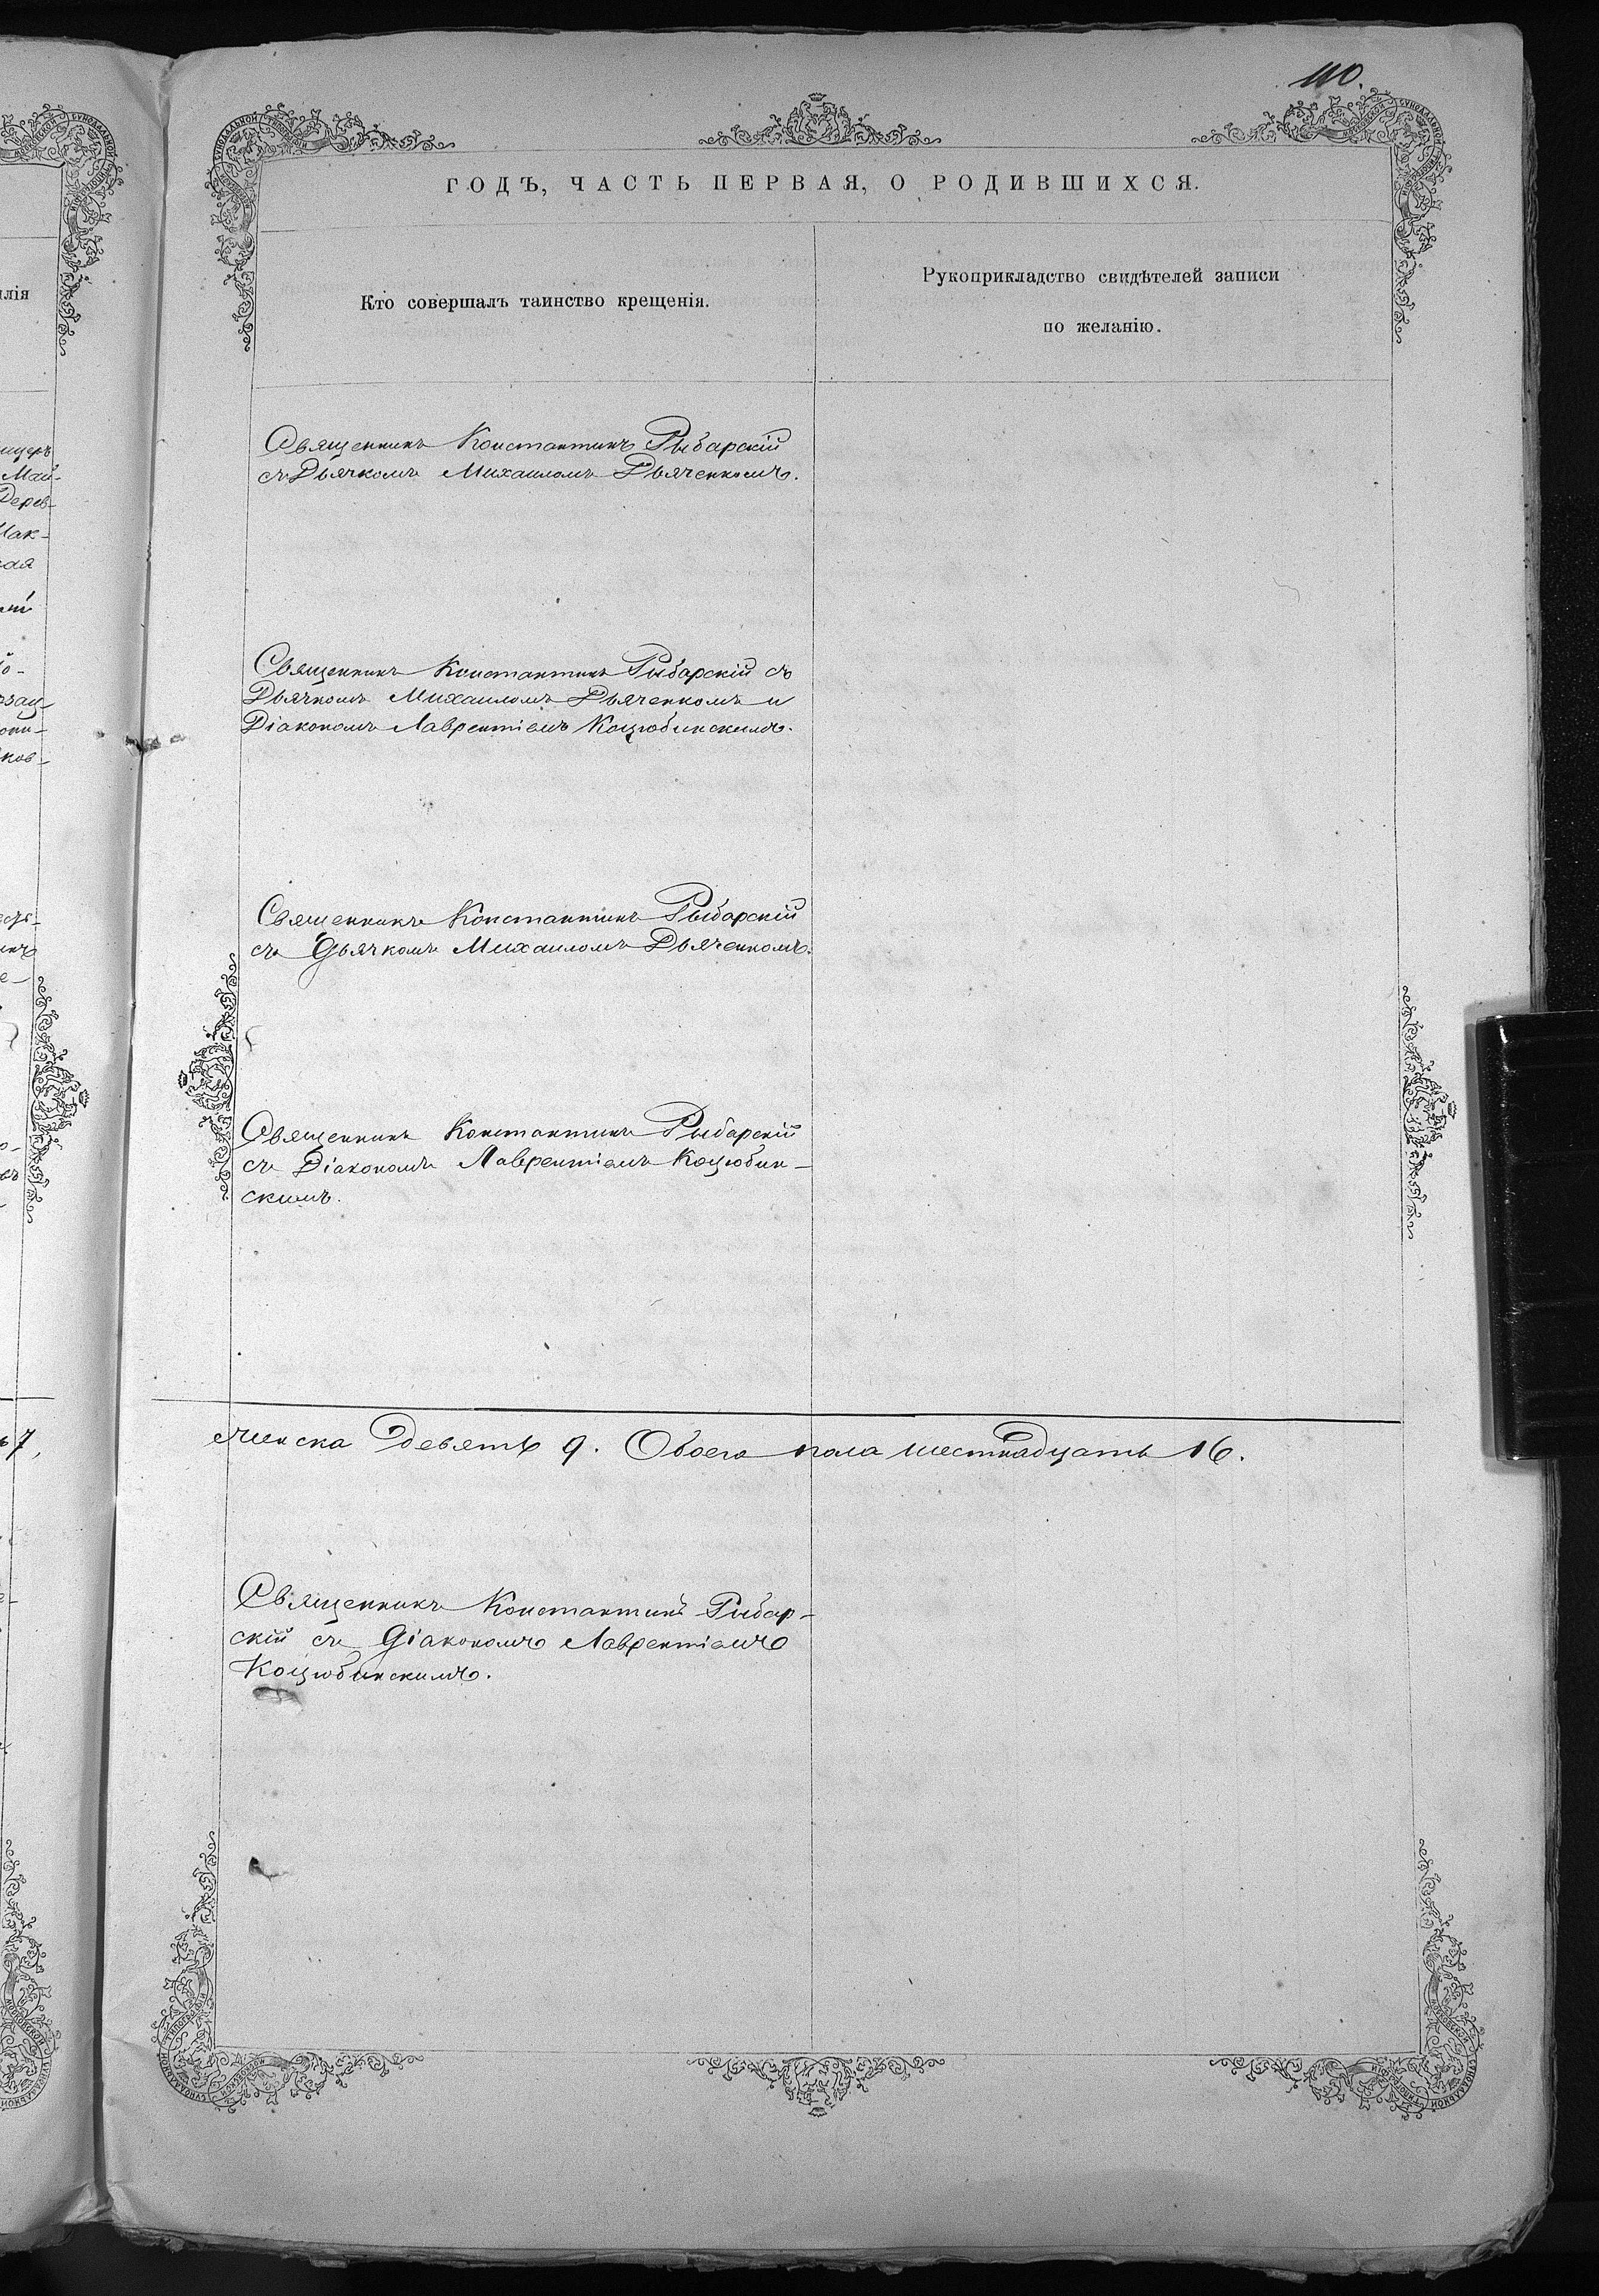 110.
ГОДЪ, ЧАСТЬ ПЕРВАЯ, О РОДИВШИХСЯ.
Кто совершалъ таинство крещенія.
Рукоприкладство свидѣтелей записи
по желанію.
Священникъ Константинъ Рыбарскій
съ Дьячкомъ Михаиломъ Дьяченкомъ.
Священникъ Константинъ Рыбарскій съ
Дьячкомъ Михаиломъ Дьяченкомъ и
Діакономъ Лаврентіемъ Коцюбинскимъ.
Священникъ Константинъ Рыбарскій
съ Дьячкомъ Михаиломъ Дьяченкомъ.
Священникъ Константинъ Рыбарскій
съ Діакономъ Лаврентіемъ Коцюбин-
скимъ.
женска девять 9. Обоего пола шестнадцать 16.
Священникъ Константинъ Рыбар-
скій съ Діакономъ Лаврентіемъ
Коцюбинскимъ.
лія
Май-
Дерев-
ая
ков-
7,